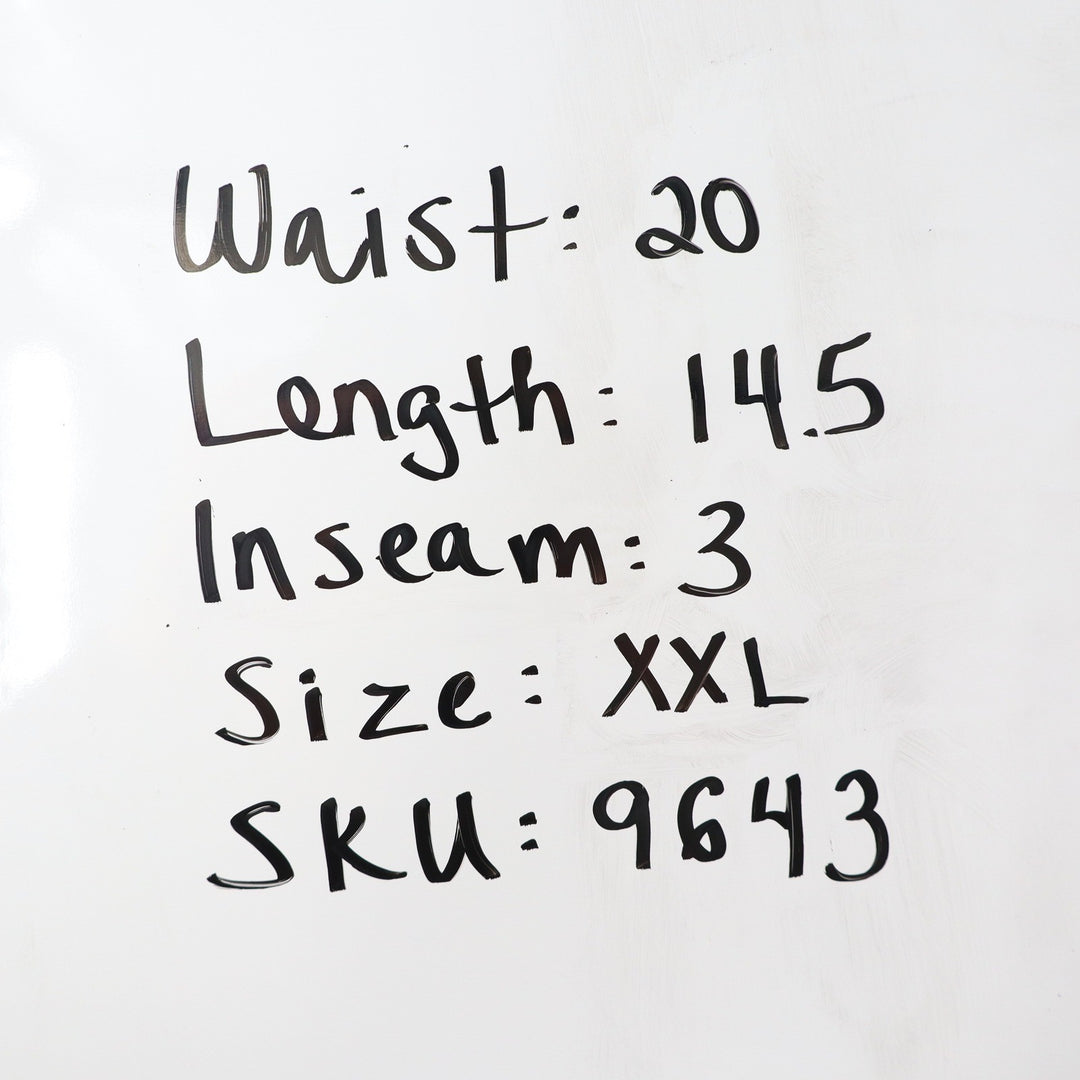 Waist: 20
Length: 14.5
Inseam: 3
Size: XXL
SKU: 9643